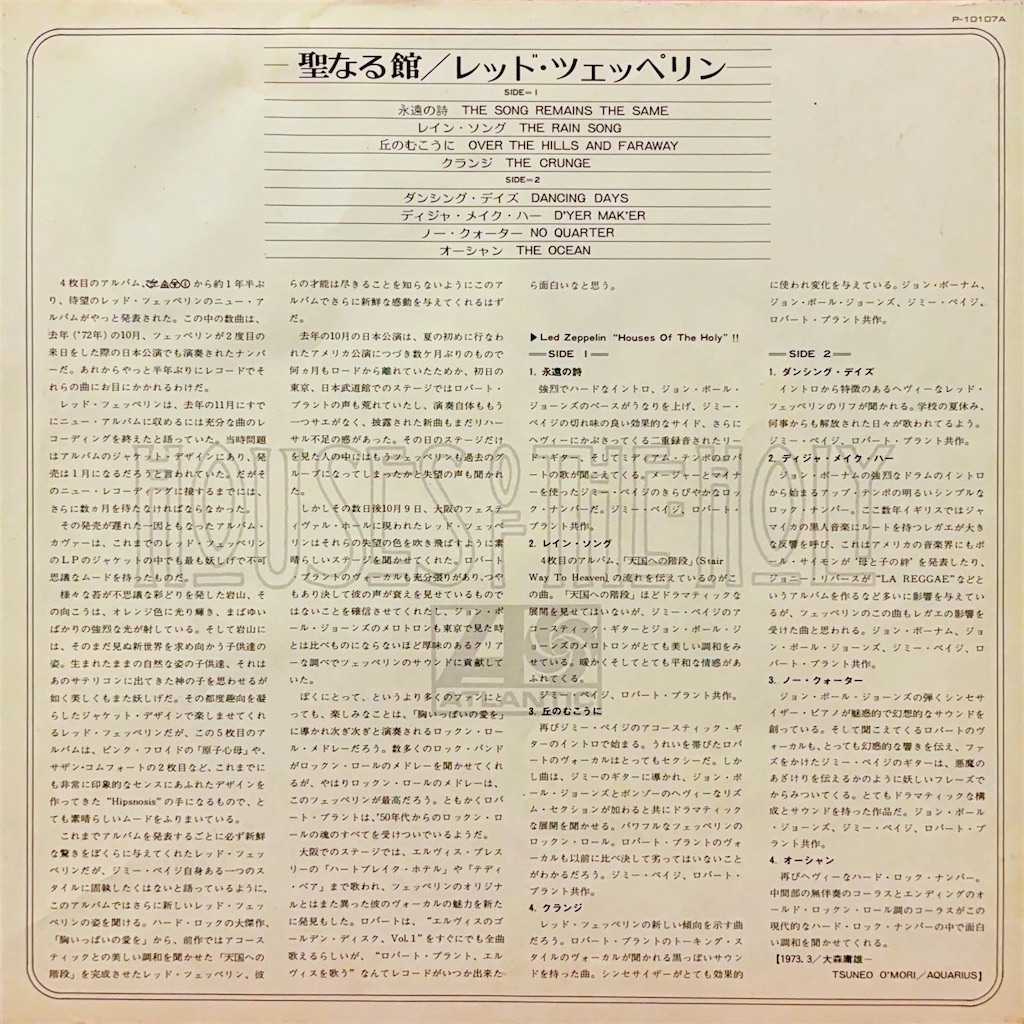 P-10107A
聖なる館／レッド・ツェッペリン
SIDE=1
永遠の詩 THE SONG REMAINS THE SAME
レイン・ソング THE RAIN SONG
丘のむこうに OVER THE HILLS AND FARAWAY
クランジ THE CRUNGE
SIDE=2
ダンシング・デイズ DANCING DAYS
ディジャ・メイク・ハー D'YER MAK'ER
ノー・クォーター NO QUARTER
オーシャン THE OCEAN
4枚目のアルバム、から約1年半ぶ
り、待望のレッド・ツェッペリンのニュー・ア
ルバムがやっと発表された。この中の数曲は、
去年('72年)の10月、ツェッペリンが2度目の
来日をした際の日本公演でも演奏されたナンバ
ーだ。あれからやっと半年ぶりにレコードでそ
れらの曲にお目にかかれるわけだ。
レッド・ツェッペリンは、去年の11月にすで
にニュー・アルバムに収めるには充分な曲のレ
コーディングを終えたと語っていた。当時問題
はアルバムのジャケット・デザインにあり、発
売は1月になるだろうと言われていた。だがそ
のニュー・レコーディングに接するまでには、
さらに数ヵ月を待たなければならなかった。
その発売が遅れた一因ともなったアルバム・
カヴァーは、これまでのレッド・ツェッペリン
のLPのジャケットの中でも最も妖しげで不可
思議なムードを持ったものだ。
様々な苔が不思議な彩どりを発した岩山、そ
の向こうは、オレンジ色に光り輝き、まばゆい
ばかりの強烈な光が射している。そして岩山に
は、そのまだ見ぬ新世界を求め向かう子供達の
姿。生まれたままの自然な姿の子供達、それは
あのサテリコンに出てきた神の子を思わせるが
如く美しくもまた妖しげだ。その都度趣向を凝
らしたジャケット・デザインで楽しませてくれ
るレッド・ツェッペリンだが、この5枚目のア
ルバムは、ピンク・フロイドの「原子心母」や、
サザン・コムフォートの2枚目など、これまでに
も非常に印象的なセンスにあふれたデザインを
作ってきた“Hipsnosis”の手になるもので、と
ても素晴らしいムードをふりまいている。
これまでアルバムを発表するごとに必ず新鮮
な驚きをぼくらに与えてくれたレッド・ツェッ
ペリンだが、ジミー・ペイジ自身ある一つのス
タイルに固執したくはないと語っているように、
このアルバムではさらに新しいレッド・ツェッ
ペリンの姿を聞ける。ハード・ロックの大傑作、
「胸いっぱいの愛を」から、前作ではアコース
ティックとの美しい調和を聞かせた「天国への
階段」を完成させたレッド・ツェッペリン、彼
らの才能は尽きることを知らないようにこのア
ルバムでさらに新鮮な感動を与えてくれるはず
だ。
去年の10月の日本公演は、夏の初めに行なわ
れたアメリカ公演につづき数ケ月ぶりのもので
何ヵ月もロードから離れていたためか、初日の
東京、日本武道館でのステージではロバート・
プラントの声も荒れていたし、演奏自体ももう
一つサエがなく、披露された新曲もまだリハー
サル不足の感があった。その日のステージだけ
を見た人の中にはもうツェッペリンも過去のグ
ループになってしまったかと失望の声も聞かれ
た。
しかしその数日後10月9日、大阪のフェステ
ィヴァル・ホールに現われたレッド・ツェッペ
リンはそれらの失望の色を吹き飛ばすように素
晴らしいステージを聞かせてくれた。ロバート
・プラントのヴォーカルも充分張りがあり、つや
もあり決して彼の声が衰えを見せているもので
はないことを確信させてくれたし、ジョン・ポー
ル・ジョーンズのメロトロンも東京で見た時
とは比べものにならないほど厚味のあるクリア
ーな調べでツェッペリンのサウンドに貢献して
いた。
ぼくにとって、というより多くのファンにと
っても、楽しみなことは、「胸いっぱいの愛を」
に導かれ次ぎ次ぎと演奏されるロックン・ロー
ル・メドレーだろう。数多くのロック・バンド
がロックン・ロールのメドレーを聞かせてくれ
るが、やはりロックン・ロールのメドレーは、
このツェッペリンが最高だろう。ともかくロバ
ート・プラントは、'50年代からのロックン・ロ
ールの魂のすべてを受けついでいるようだ。
大阪でのステージでは、エルヴィス・プレス
リーの「ハートブレイク・ホテル」や「テディ
・ベア」まで歌われ、ツェッペリンのオリジナ
ルとはまた異った彼のヴォーカルの魅力を新た
に発見もした。ロバートは、“エルヴィスのゴ
ールデン・ディスク、Vol.1”をすぐにでも全曲
歌えるらしいが、“ロバート・プラント、エル
ヴィスを歌う”なんてレコードがいつか出来た
ら面白いなと思う。
▶Led Zeppelin “Houses Of The Holy” !!
SIDE 1
1. 永遠の詩
強烈でハードなイントロ、ジョン・ポール・
ジョーンズのベースがうなりを上げ、ジミー・
ペイジの切れ味の良い効果的なサイド、さらに
ヘヴィーにかぶさってくる二重録音されたリー
ド・ギター、そしてミディアム・テンポのロバ
ートの歌が聞こえてくる。メージャーとマイナ
ーを使ったジミー・ペイジのきらびやかなロッ
ク・ナンバーだ。ジミー・ペイジ、ロバート・
プラント共作。
2. レイン・ソング
4枚目のアルバム、「天国への階段」(Stair
Way To Heaven)の流れを伝えているのがこ
の曲。「天国への階段」ほどドラマティックな
展開を見せてはいないが、ジミー・ペイジのア
コースティック・ギターとジョン・ポール・ジ
ョーンズのメロトロンがとても美しい調和をみ
せている。暖かくそしてとても平和な情感があ
ふれてくる。
ジミー・ペイジ、ロバート・プラント共作。
3. 丘のむこうに
再びジミー・ペイジのアコースティック・ギ
ターのイントロで始まる。うれいを帯びたロバ
ートのヴォーカルはとってもセクシーだ。しか
し曲は、ジミーのギターに導かれ、ジョン・ポ
ール・ジョーンズとボンゾーのヘヴィーなリズ
ム・セクションが加わると共にドラマティック
な展開を聞かせる。パワフルなツェッペリンの
ロックン・ロール。ロバート・プラントのヴォ
ーカルも以前に比べ決して劣ってはいないこと
がわかるだろう。ジミー・ペイジ、ロバート・
プラント共作。
4. クランジ
レッド・ツェッペリンの新しい傾向を示す曲
だろう。ロバート・プラントのトーキング・ス
タイルのヴォーカルが聞かれる黒っぽいサウン
ドを持った曲。シンセサイザーがとても効果的
に使われ変化を与えている。ジョン・ボーナム、
ジョン・ポール・ジョーンズ、ジミー・ペイジ、
ロバート・プラント共作。
SIDE 2
1. ダンシング・デイズ
イントロから特徴のあるヘヴィーなレッド・
ツェッペリンのリフが聞かれる。学校の夏休み、
何事からも解放された日々が歌われてるよう。
ジミー・ペイジ、ロバート・プラント共作。
2. ディジャ・メイク・ハー
ジョン・ボーナムの強烈なドラムのイントロ
から始まるアップ・テンポの明るいシンプルな
ロック・ナンバー。ここ数年イギリスではジャ
マイカの黒人音楽にルートを持つレガエが大き
な反響を呼び、これはアメリカの音楽界にもポ
ール・サイモンが‘母と子の絆’を発表したり、
ジョニー・リバースが“LA REGGAE”などと
いうアルバムを作るなど多いに影響を与えてい
るが、ツェッペリンのこの曲もレガエの影響を
受けた曲と思われる。ジョン・ボーナム、ジョ
ン・ポール・ジョーンズ、ジミー・ペイジ、ロ
バート・プラント共作。
3. ノー・クォーター
ジョン・ポール・ジョーンズの弾くシンセサ
イザー・ピアノが魅惑的で幻想的なサウンドを
創っている。そして聞こえてくるロバートのヴ
ォーカルも、とっても幻惑的な響きを伝え、ファ
ズをかけたジミー・ペイジのギターは、悪魔の
あざけりを伝えるかのように妖しいフレーズで
からみついてくる。とてもドラマティックな構
成とサウンドを持った作品だ。ジョン・ポール
・ジョーンズ、ジミー・ペイジ、ロバート・プ
ラント共作。
4. オーシャン
再びヘヴィーなハード・ロック・ナンバー。
中間部の無伴奏のコーラスとエンディングのオ
ールド・ロックン・ロール調のコーラスがこの
現代的なハード・ロック・ナンバーの中で面白
い調和を聞かせてくれる。
【1973. 3／大森庸雄−
TSUNEO O'MORI／AQUARIUS】
HOUSES OF THE HOLY
ATLANTIC